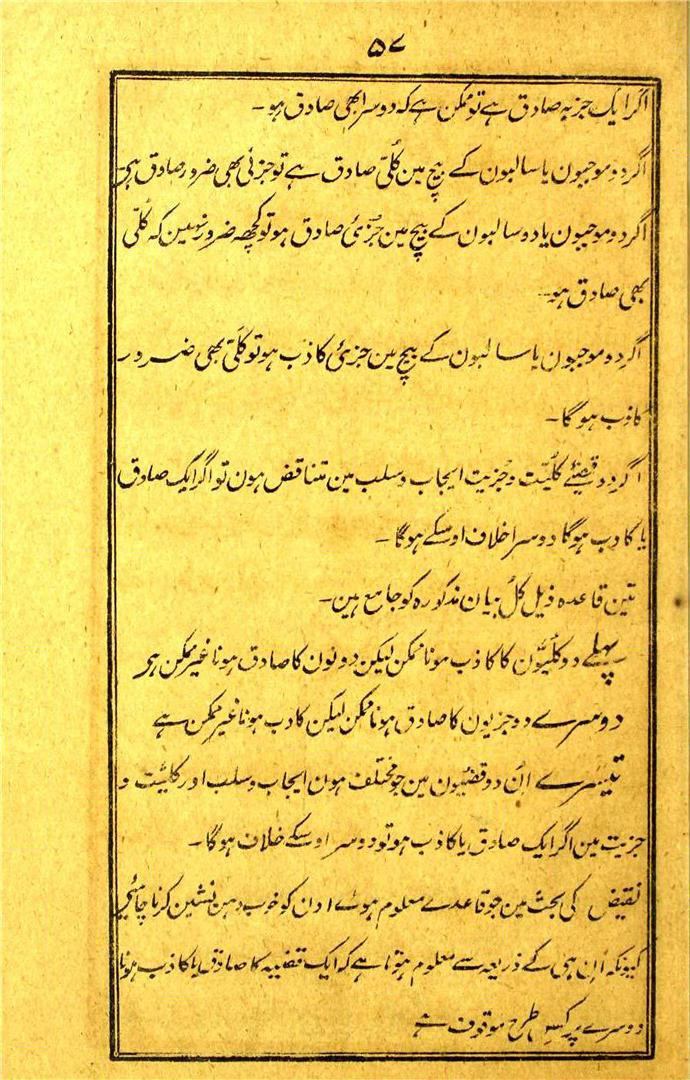 ۵۷
اگر ایک جزیہ صادق ہے تو ممکن ہے کہ دوسرا بھی صادق ہو۔
اگر دو موجبون یا سالبون کے بیچ مین کلّی صادق ہے تو جزئی بھی ضرور صادق ہی
اگر دو موجبون یا دو سالبون کے بیچ مین جزئی صادق ہو تو کچھہ ضرور نہین کہ کُلّی
بھی صادق ہو۔
اگر دو موجبون یا سالبون کے بیچ مین جزئی کاذب ہو تو کلّی بھی ضرور
کاذب ہوگا۔
اگر دو قضیئے کلیّت و جزیت ایجاب و سلب مین متناقض ہون تو اگر ایک صادق
یا کاذب ہوگا دوسرا خلاف اوسکے ہوگا۔
تین قاعدہ ذیل کل بیان مذکورہ کو جامع ہین۔
پہلے دو کلیّون کا کاذب ہونا ممکن لیکن دونون کا صادق ہونا غیر ممکن ہی
دوسرے دو جزیون کا صادق ہونا ممکن لیکن کاذب ہونا غیر ممکن ہے
تیسرے اُن دو قضیون مین جو مختلف ہون ایجاب و سلب اور کلیّت و
جزیت مین اگر ایک صادق یا کاذب ہو تو دوسرا اوسکے خلاف ہوگا۔
نقیض کی بحث مین جو قاعدے معلوم ہوئے اون کو خوب ذہن نشین کرنا چاہئی
کیونکہ اُن ہی کے ذریعہ سے معلوم ہوتا ہے کہ ایک قضیہ کا صادق یا کاذب ہونا
دوسرے پر کس طرح موقوف ہے